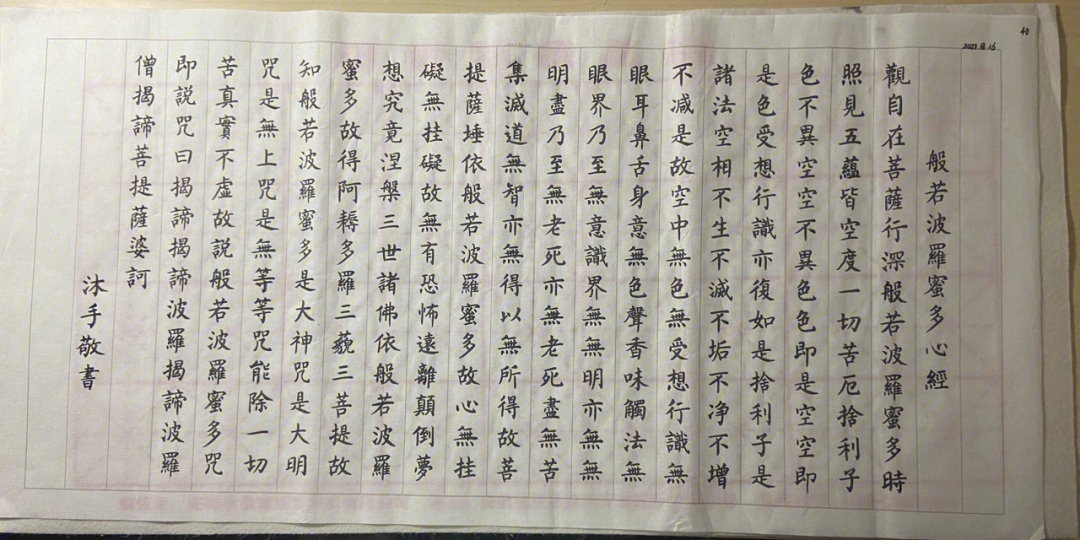 40
般若波羅蜜多心經
觀自在菩薩行深般若波羅蜜多時
照見五蘊皆空度一切苦厄捨利子
色不異空空不異色色即是空空即
是色受想行識亦復如是捨利子是
諸法空相不生不滅不垢不净不增
不减是故空中無色無受想行識無
眼耳鼻舌身意無色聲香味觸法無
眼界乃至無意識界無無明亦無無
明盡乃至無老死亦無老死盡無苦
集滅道無智亦無得以無所得故菩
提薩埵依般若波羅蜜多故心無挂
礙無挂礙故無有恐怖遠離顛倒夢
想究竟涅槃三世諸佛依般若波羅
蜜多故得阿耨多羅三藐三菩提故
知般若波羅蜜多是大神咒是大明
咒是無上咒是無等等咒能除一切
苦真實不虛故説般若波羅蜜多咒
即説咒曰揭諦揭諦波羅揭諦波羅
僧揭諦菩提薩婆訶
沐手敬書